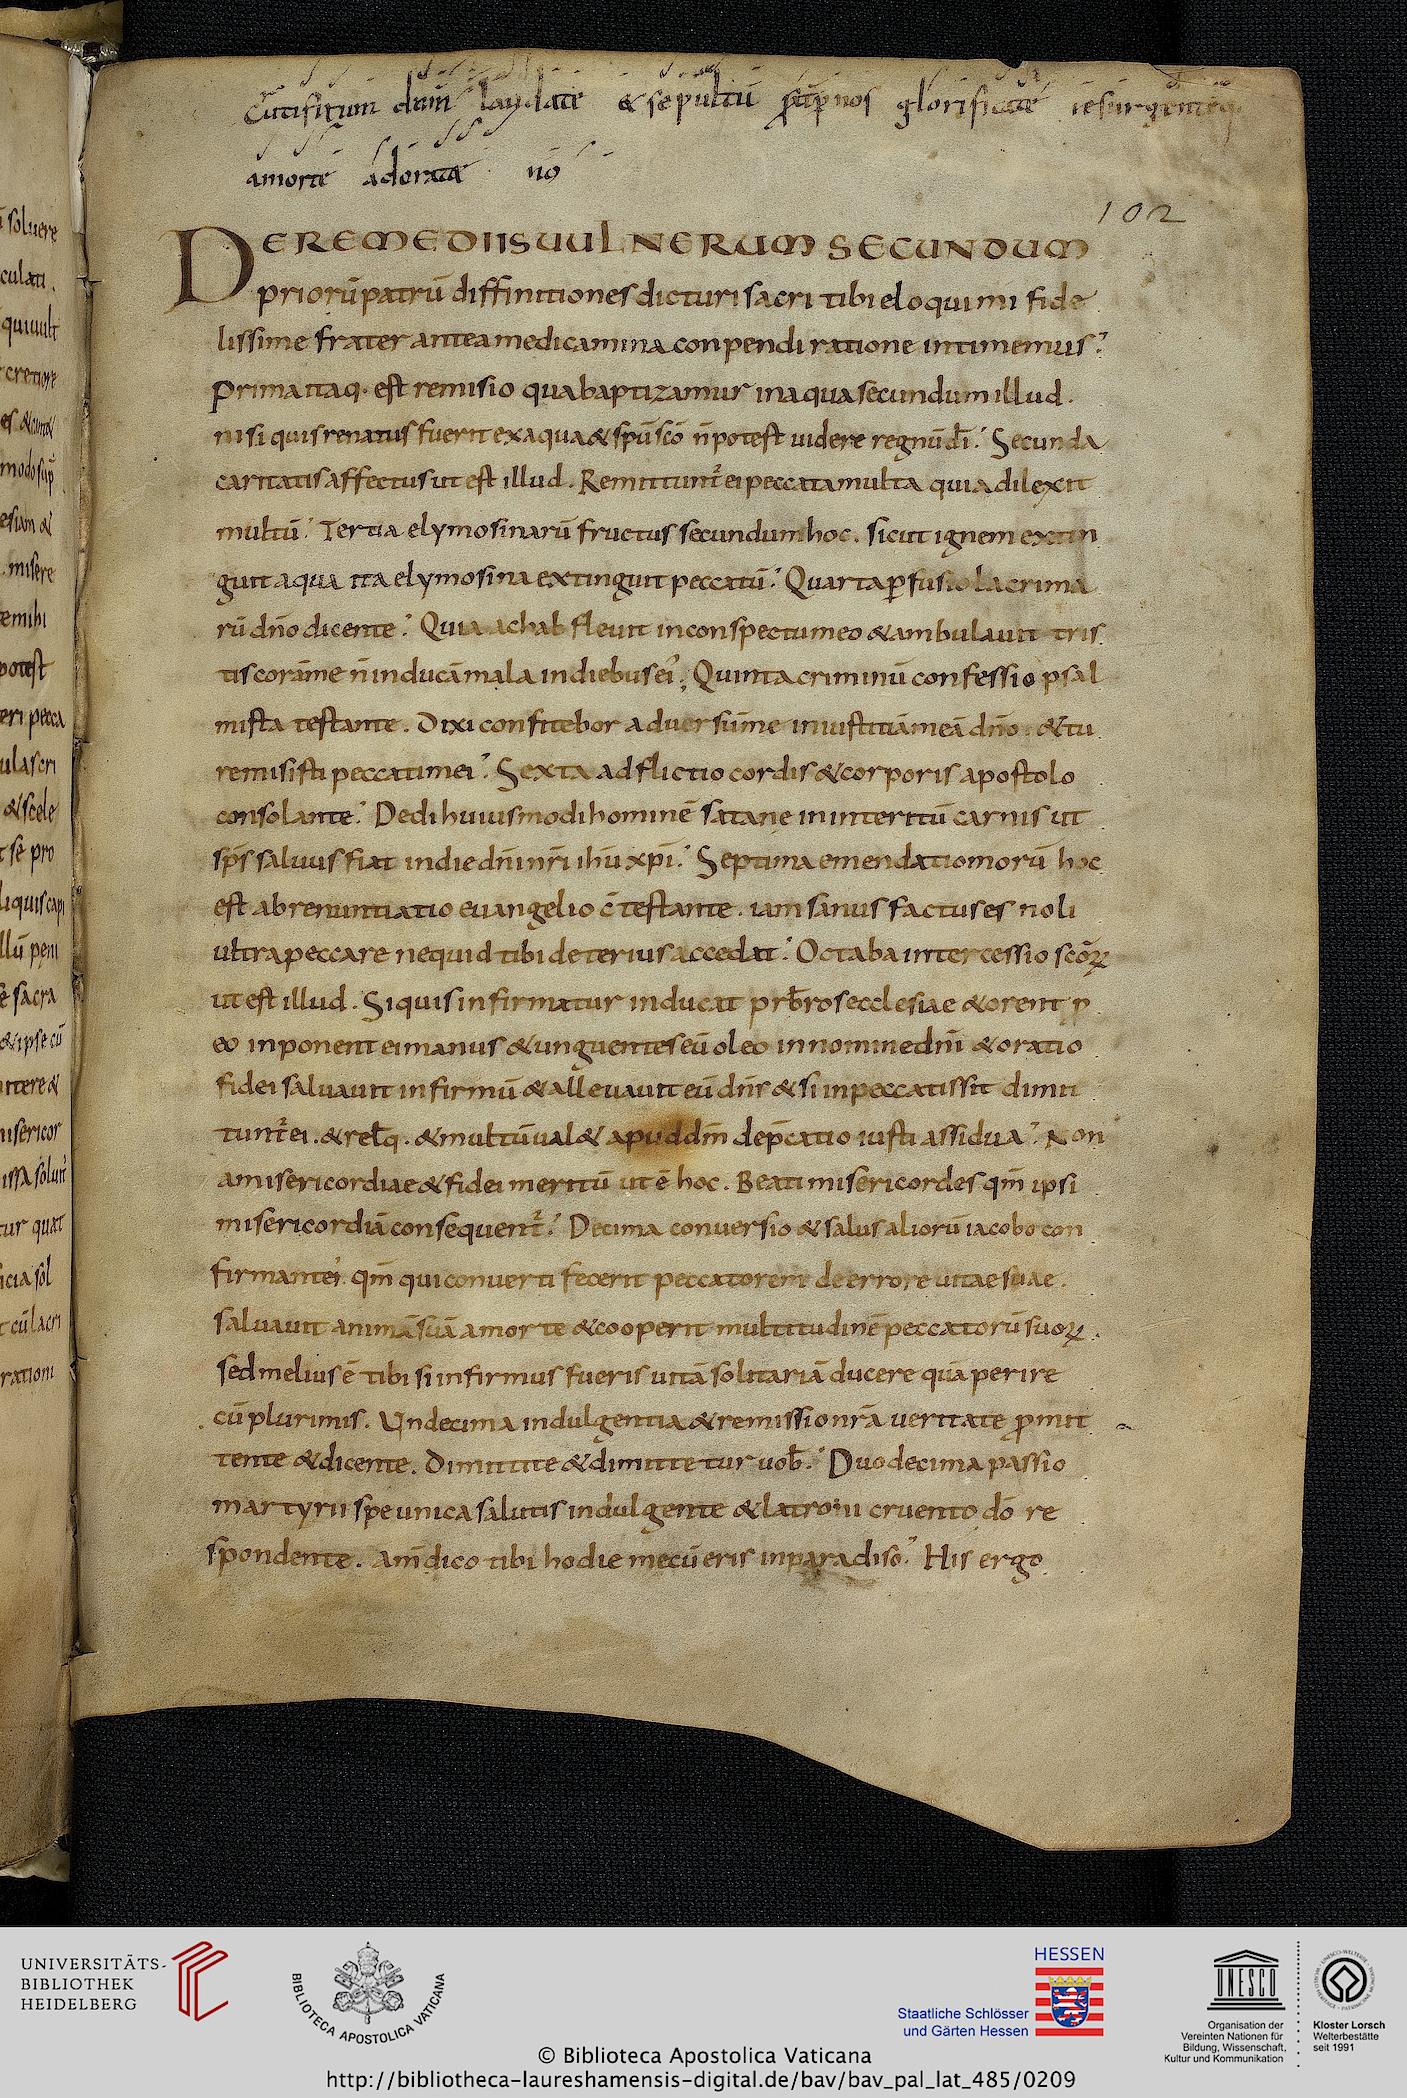 Crucifixum dnm laudate & sepultū ꝓpt̄ nos glorificate resurgenteq
amorte adorate no
102
DEREMEDIIS UULNERUM SECUNDUM
priorū patrū diffinitiones dicturi sacri tibi eloqui mi fide
lissime frater antea medicamina conpendi ratione intimemus.
Prima itaq. est remisio qua baptizamur in aqua secundum illud.
nisi quis renatus fuerit exaqua & spū sc̄o n̄ potest uidere regnū dī. Secunda
caritatis affectus ut est illud. Remittunt̄ ei peccata multa quia dilexit
multū. Tertia elymosinarū fructus secundum hoc. sicut ignem extin
guit aqua ita elymosina extinguit peccatū. Quarta ꝑfusio lacrima
rū dn̄o dicente. Quia achab fleuit in conspectu meo & ambulauit tris
tis corā me n̄ inducā mala in diebus ei. Quinta criminū confessio psal
mista testante. Dixi confitebor aduersū me iniustitiā meā dn̄o & tu
remisisti peccati mei. Sexta adflictio cordis & corporis apostolo
consolante. Dedi huiusmodi hominē satane in interitū carnis ut
sp̄s saluus fiat in die dn̄i nr̄i ihū xp̄i. Septima emendatio morū hoc
est abrenuntiatio euangelio c̄ testante. iam sanus factus es noli
ultra peccare nequid tibi deterius accedat. Octaba intercessio sc̄oꝝ
ut est illud. Siquis infirmatur inducat prb̄ros ecclesiae & orent ꝓ
eo inponent ei manus & unguentes eū oleo in nomine dn̄i & oratio
fidei saluauit infirmū & alleuauit eū dn̄s & si in peccatis sit dimit
tunt̄ ei. & rel̄q. & multū ual& apud dm̄ dep̄catio iusti assidua. Non
a misericordiae & fidei meritū ut ē hoc. Beati misericordes qm̄ ipsi
misericordiā consequent̄. Decima conuersio & salus aliorū iacobo con
firmante. qm̄ qui conuerti fecerit peccatorem de errore uitae suae.
saluauit animā suā a morte & cooperit multitudinē peccatorū suoꝝ.
sed melius ē tibi si infirmus fueris uitā solitariā ducere quā perire
cū plurimis. Undecima indulgentia & remissio nr̄a ueritate ꝓmit
tente & dicente. Dimittite & dimittetur uob̄. Duodecima passio
martyrii spe unica salutis indulgente & latroni cruento dō re
spondente. Am̄ dico tibi hodie mecū eris in paradiso. His ergo
UNIVERSITÄTS-
BIBLIOTHEK
HEIDELBERG
BIBLIOTECA APOSTOLICA VATICANA
HESSEN
Staatliche Schlösser
und Gärten Hessen
UNESCO
Organisation der
Vereinten Nationen für
Bildung, Wissenschaft,
Kultur und Kommunikation
Kloster Lorsch
Welterbestätte
seit 1991
© Biblioteca Apostolica Vaticana
http://bibliotheca-laureshamensis-digital.de/bav/bav_pal_lat_485/0209